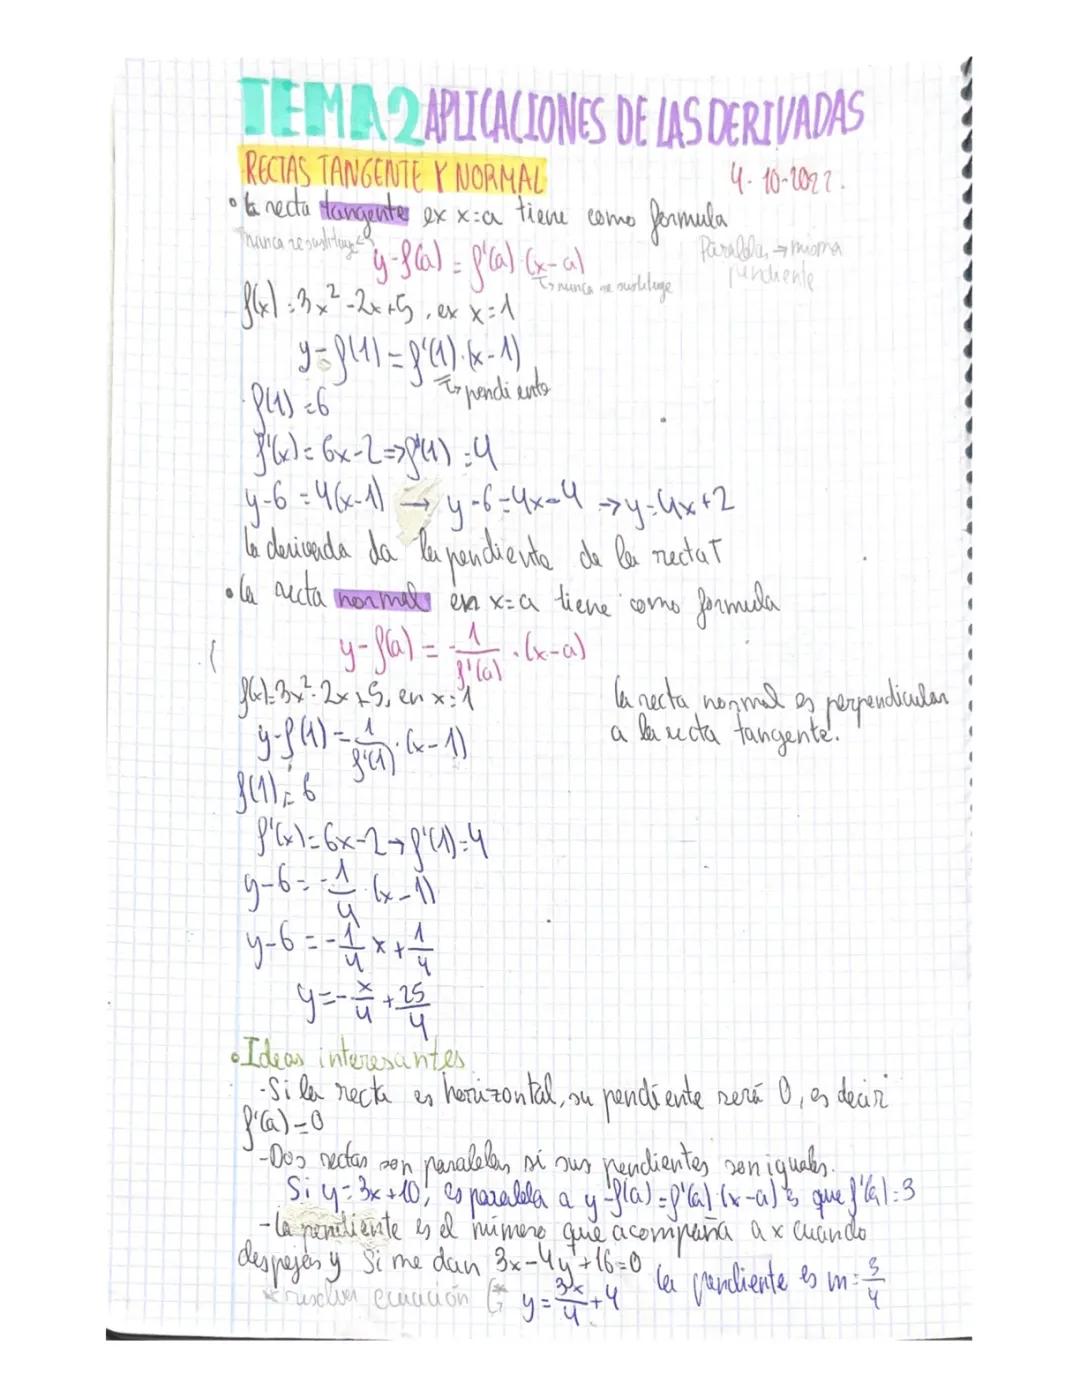 TEMA 2 APLICACIONES DE LAS DERIVADAS
RECTAS TANGENTE Y NORMAL
4-10-2022.
• la recta tangente ex x=a tiene como formula
nunca se sustituye
y-f(a) = f'(a)·(x-a)
↳ nunca se sustituye
Paralela → misma
pendiente
f(x) = 3x²-2x+5, ex x=1
y-f(1) = f'(1)·(x-1)
↳ pendiente
f(1) = 6
f'(x) = 6x-2 => f'(1) = 4
y-6 = 4(x-1) → y-6=4x-4 → y=4x+2
la derivada da la pendiente de la recta T
• la recta normal en x=a tiene como formula
y-f(a) = -1/f'(a) · (x-a)
f(x)=3x²-2x+5, en x=1
la recta normal es perpendicular
a la recta tangente.
y-f(1) = -1/f'(1) · (x-1)
f(1) = 6
f'(x) = 6x-2 → f'(1)=4
y-6 = -1/4 (x-1)
y-6 = -1/4 x + 1/4
y = -x/4 + 25/4
• Ideas interesantes
-Si la recta es horizontal, su pendiente será 0, es decir
f'(a)=0
-Dos rectas son paralelas si sus pendientes son iguales.
Si y=3x+10, es paralela a y-f(a)=f'(a)·(x-a) es que f'(a)=3
-La pendiente es el número que acompaña a x cuando
despejas y Si me dan 3x-4y+16=0 la pendiente es m=3/4
* resolver ecuación ↳* y = 3x/4 + 4